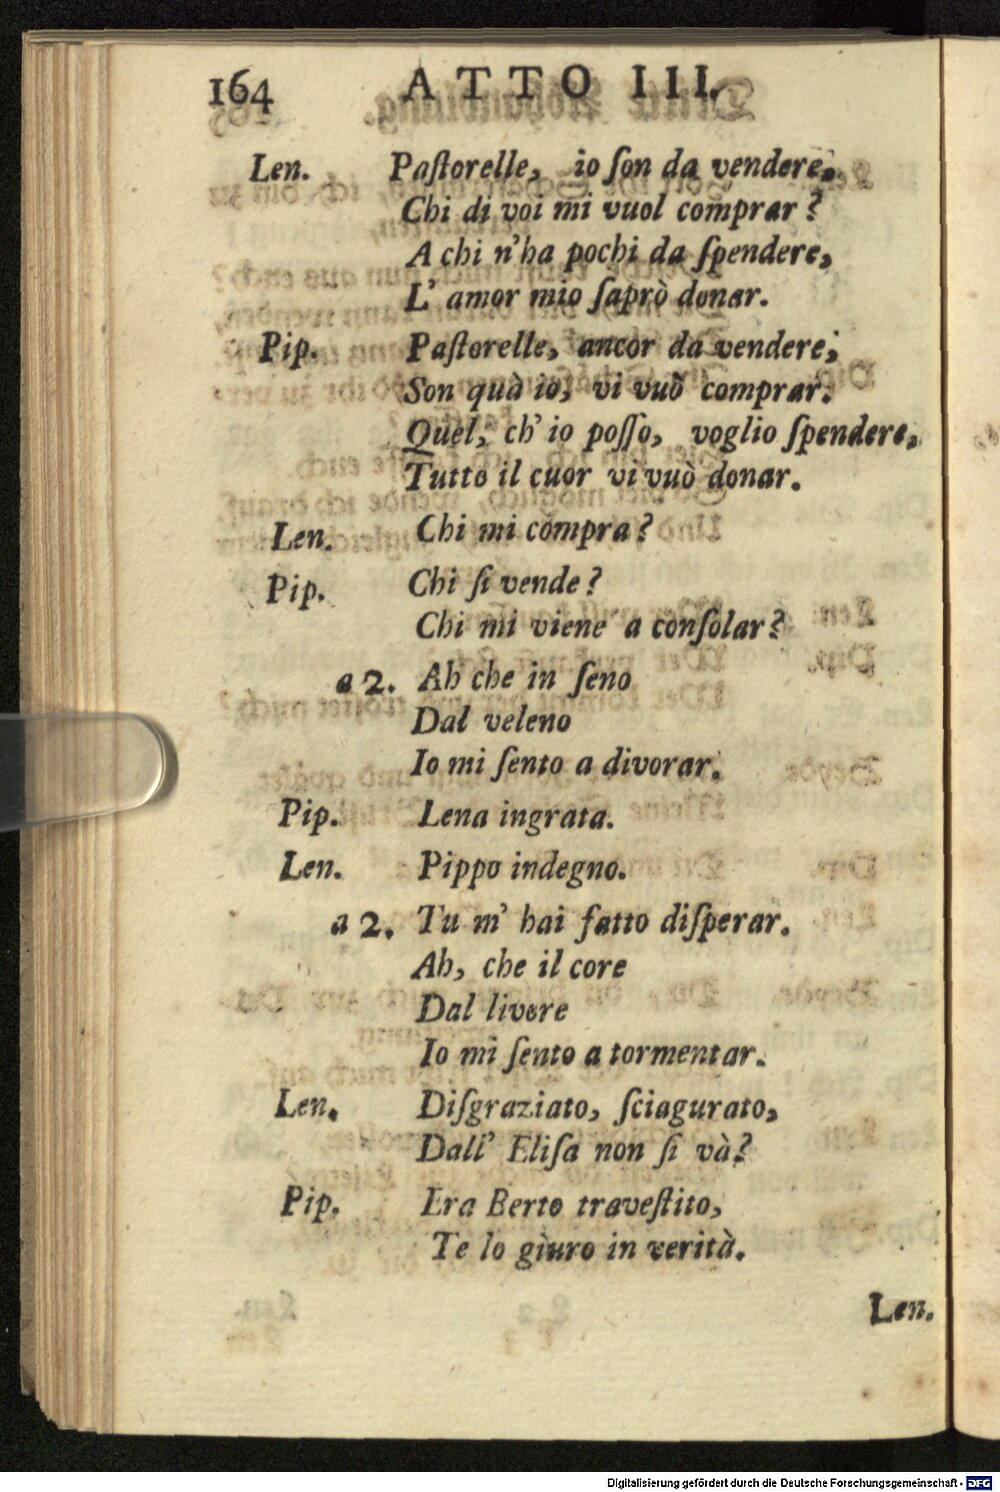 164 ATTO III.
Len. Paſtorelle, io ſon da vendere,
Chi di voi mi vuol comprar?
A chi n'ha pochi da ſpendere,
L' amor mio ſaprò donar.
Pip. Paſtorelle, ancor da vendere,
Son quà io, vi vuõ comprar.
Quel, ch' io poſſo, voglio ſpendere,
Tutto il cuor vi vuò donar.
Len. Chi mi compra?
Pip. Chi ſi vende?
Chi mi viene a conſolar?
a 2. Ah che in ſeno
Dal veleno
Io mi ſento a divorar.
Pip. Lena ingrata.
Len. Pippo indegno.
a 2. Tu m' hai fatto diſperar.
Ah, che il core
Dal livore
Io mi ſento a tormentar.
Len. Diſgraziato, ſciagurato,
Dall' Eliſa non ſi và?
Pip. Era Berto traveſtito,
Te lo giuro in verità.
Len.
Digitalisierung gefördert durch die Deutsche Forschungsgemeinschaft - DFG